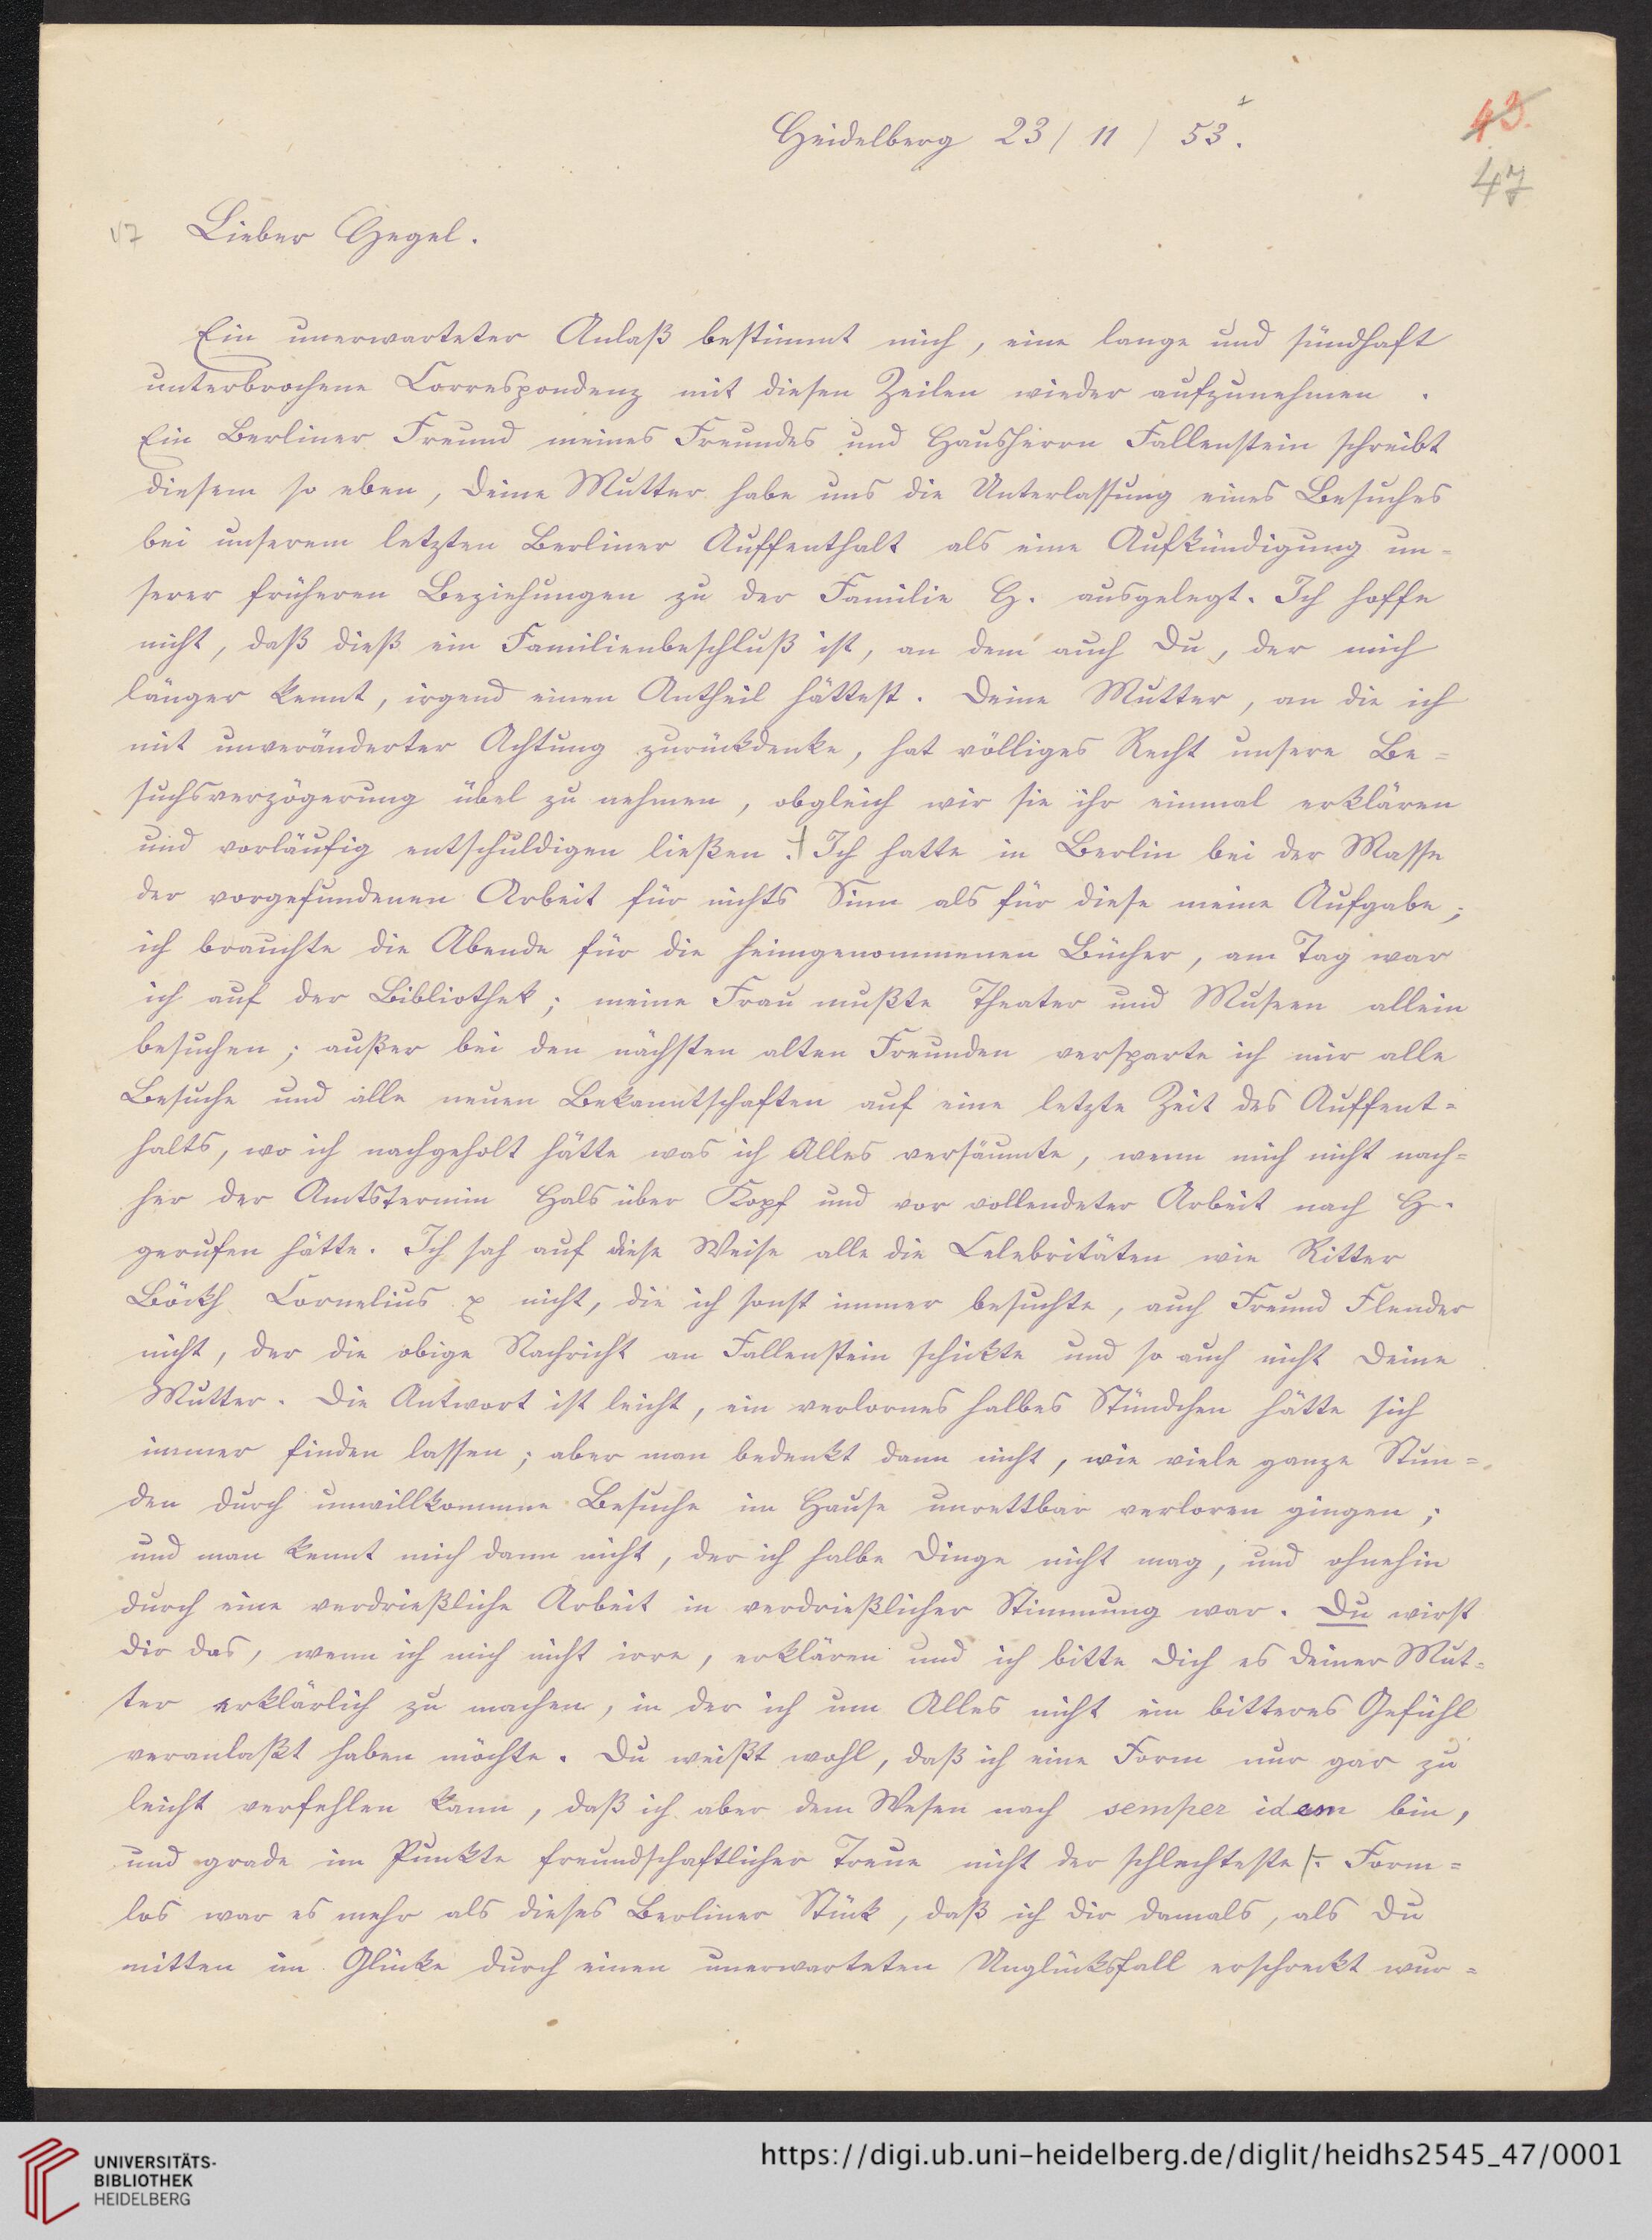 Heidelberg 23/ 11 / 53.
43.
47
Lieber Hegel.
Ein unerwarteter Anlaß bestimmt mich, eine lange und sündhaft
unterbrochene Correspondenz mit diesen Zeilen wieder aufzunehmen .
Ein Berliner Freund meines Freundes und Hausherrn Fallenstein schreibt
diesem so eben, Deine Mutter habe uns die Unterlassung eines Besuches
bei unserem letzten Berliner Auffenthalt als eine Aufkündigung un=
serer früheren Beziehungen zu der Familie H. ausgelegt. Ich hoffe
nicht, daß dieß ein Familienbeschluß ist, an dem auch Du, der mich
länger kennt, irgend einen Antheil hättest. Deine Mutter, an die ich
mit unveränderter Achtung zurückdenke, hat völliges Recht unsere Be=
suchsverzögerung übel zu nehmen, obgleich wir sie ihr einmal erklären
und vorläufig entschuldigen ließen. Ich hatte in Berlin bei der Masse
der vorgefundenen Arbeit für nichts Sinn als für diese meine Aufgabe;
ich brauchte die Abende für die heimgenommenen Bücher, am Tag war
ich auf der Bibliothek; meine Frau mußte Theater und Museen allein
besuchen; außer bei den nächsten alten Freunden versparte ich mir alle
Besuche und alle neuen Bekanntschaften auf eine letzte Zeit des Auffent=
halts, wo ich nachgeholt hätte was ich Alles versäumte, wenn mich nicht nach=
her der Amtstermin Hals über Kopf und vor vollendeter Arbeit nach H.
gerufen hätte. Ich sah auf diese Weise alle die Celebritäten wie Ritter
Böckh Cornelius nicht, die ich sonst immer besuchte, auch Freund Flender
nicht, der die obige Nachricht an Fallenstein schickte und so auch nicht Deine
Mutter. Die Antwort ist leicht, ein verlornes halbes Stündchen hätte sich
immer finden lassen; aber man bedenkt dann nicht, wie viele ganze Stun=
den durch unwillkommne Besuche im Hause unrettbar verloren gingen;
und man kennt mich dann nicht, der ich halbe Dinge nicht mag, und ohnehin
durch eine verdrießliche Arbeit in verdrießlicher Stimmung war. Du wirst
Dir das, wenn ich mich nicht irre, erklären und ich bitte Dich es Deiner Mut=
ter erklärlich zu machen, in der ich um Alles nicht ein bitteres Gefühl
veranlaßt haben möchte. Du weißt wohl, daß ich eine Form nur gar zu
leicht verfehlen kann, daß ich aber dem Wesen nach semper idem bin,
und grade im Punkte freundschaftlicher Treue nicht der schlechteste. Form=
los war es mehr als dieses Berliner Stück, daß ich Dir damals, als Du
mitten im Glücke durch einen unerwarteten Unglücksfall erschreckt wur=
UNIVERSITÄTS-
BIBLIOTHEK
HEIDELBERG
https://digi.ub.uni-heidelberg.de/diglit/heidhs2545_47/0001